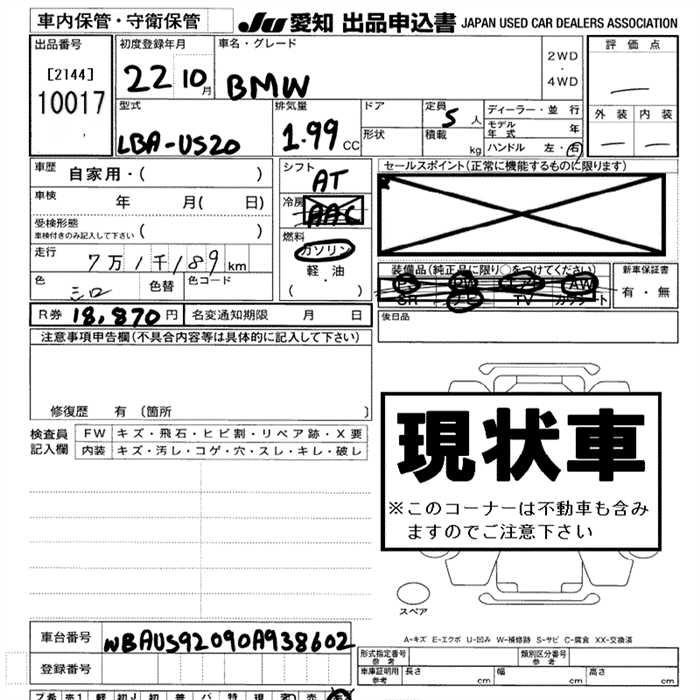 車内保管・守衛保管
JU 愛知 出品申込書 JAPAN USED CAR DEALERS ASSOCIATION
出品番号
[2144]
10017
初度登録年月
22 10月
車名・グレード
BMW
2WD
・
4WD
評価点
—
外装 内装
— —
型式
LBA-US20
排気量
1.99 cc
ドア
形状
定員
5 人
積載
kg
ディーラー・並 行
モデル年式 年
ハンドル 左・右
車歴 自家用・( )
車検 年 月( 日)
受検形態
車検付きのみ記入して下さい ( )
走行 7万1千189km
色 シロ 色替 色コード
シフト
AT
冷房
AAC
燃料
ガソリン
軽・油
( ・ )
セールスポイント(正常に機能するものに限ります)
装備品(純正品に限り○をつけてください)
PS PW エアB AW
SR ナビ TV カワシート
新車保証書
有・無
R券 18,870円 名変通知期限 月 日
後日品
注意事項申告欄(不具合内容等は具体的に記入して下さい)
修復歴 有 〔箇所 〕
検査員記入欄
FW キズ・飛石・ヒビ割・リペア跡・X要
内装 キズ・汚レ・コゲ・穴・スレ・キレ・破レ
現状車
※このコーナーは不動車も含み
ますのでご注意下さい
スペア
A-キズ E-エクボ U-凹み W-補修跡 S-サビ C-腐食 XX-交換済
車台番号 WBAUS92090A938602
登録番号
形式指定番号 参考
類別区分番号 参考
車庫証明用 参考 長さ cm 幅 cm 高さ cm